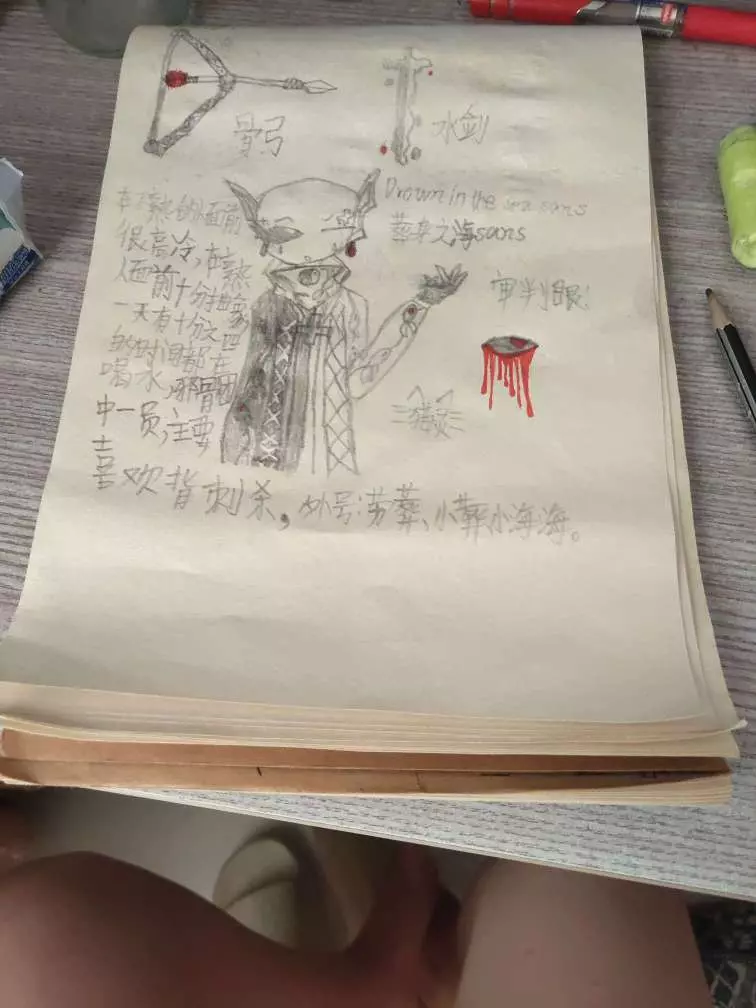 骨弓
水剑
Drown in the sea sans
葬身之海sans
审判眼!
在不熟的面前
很高冷,在熟
人面前十分抽象,
一天有十分之四
的时间都在
喝水,邪骨团
中一员,主要
喜欢背刺杀,外号:劳葬、小葬小海海。